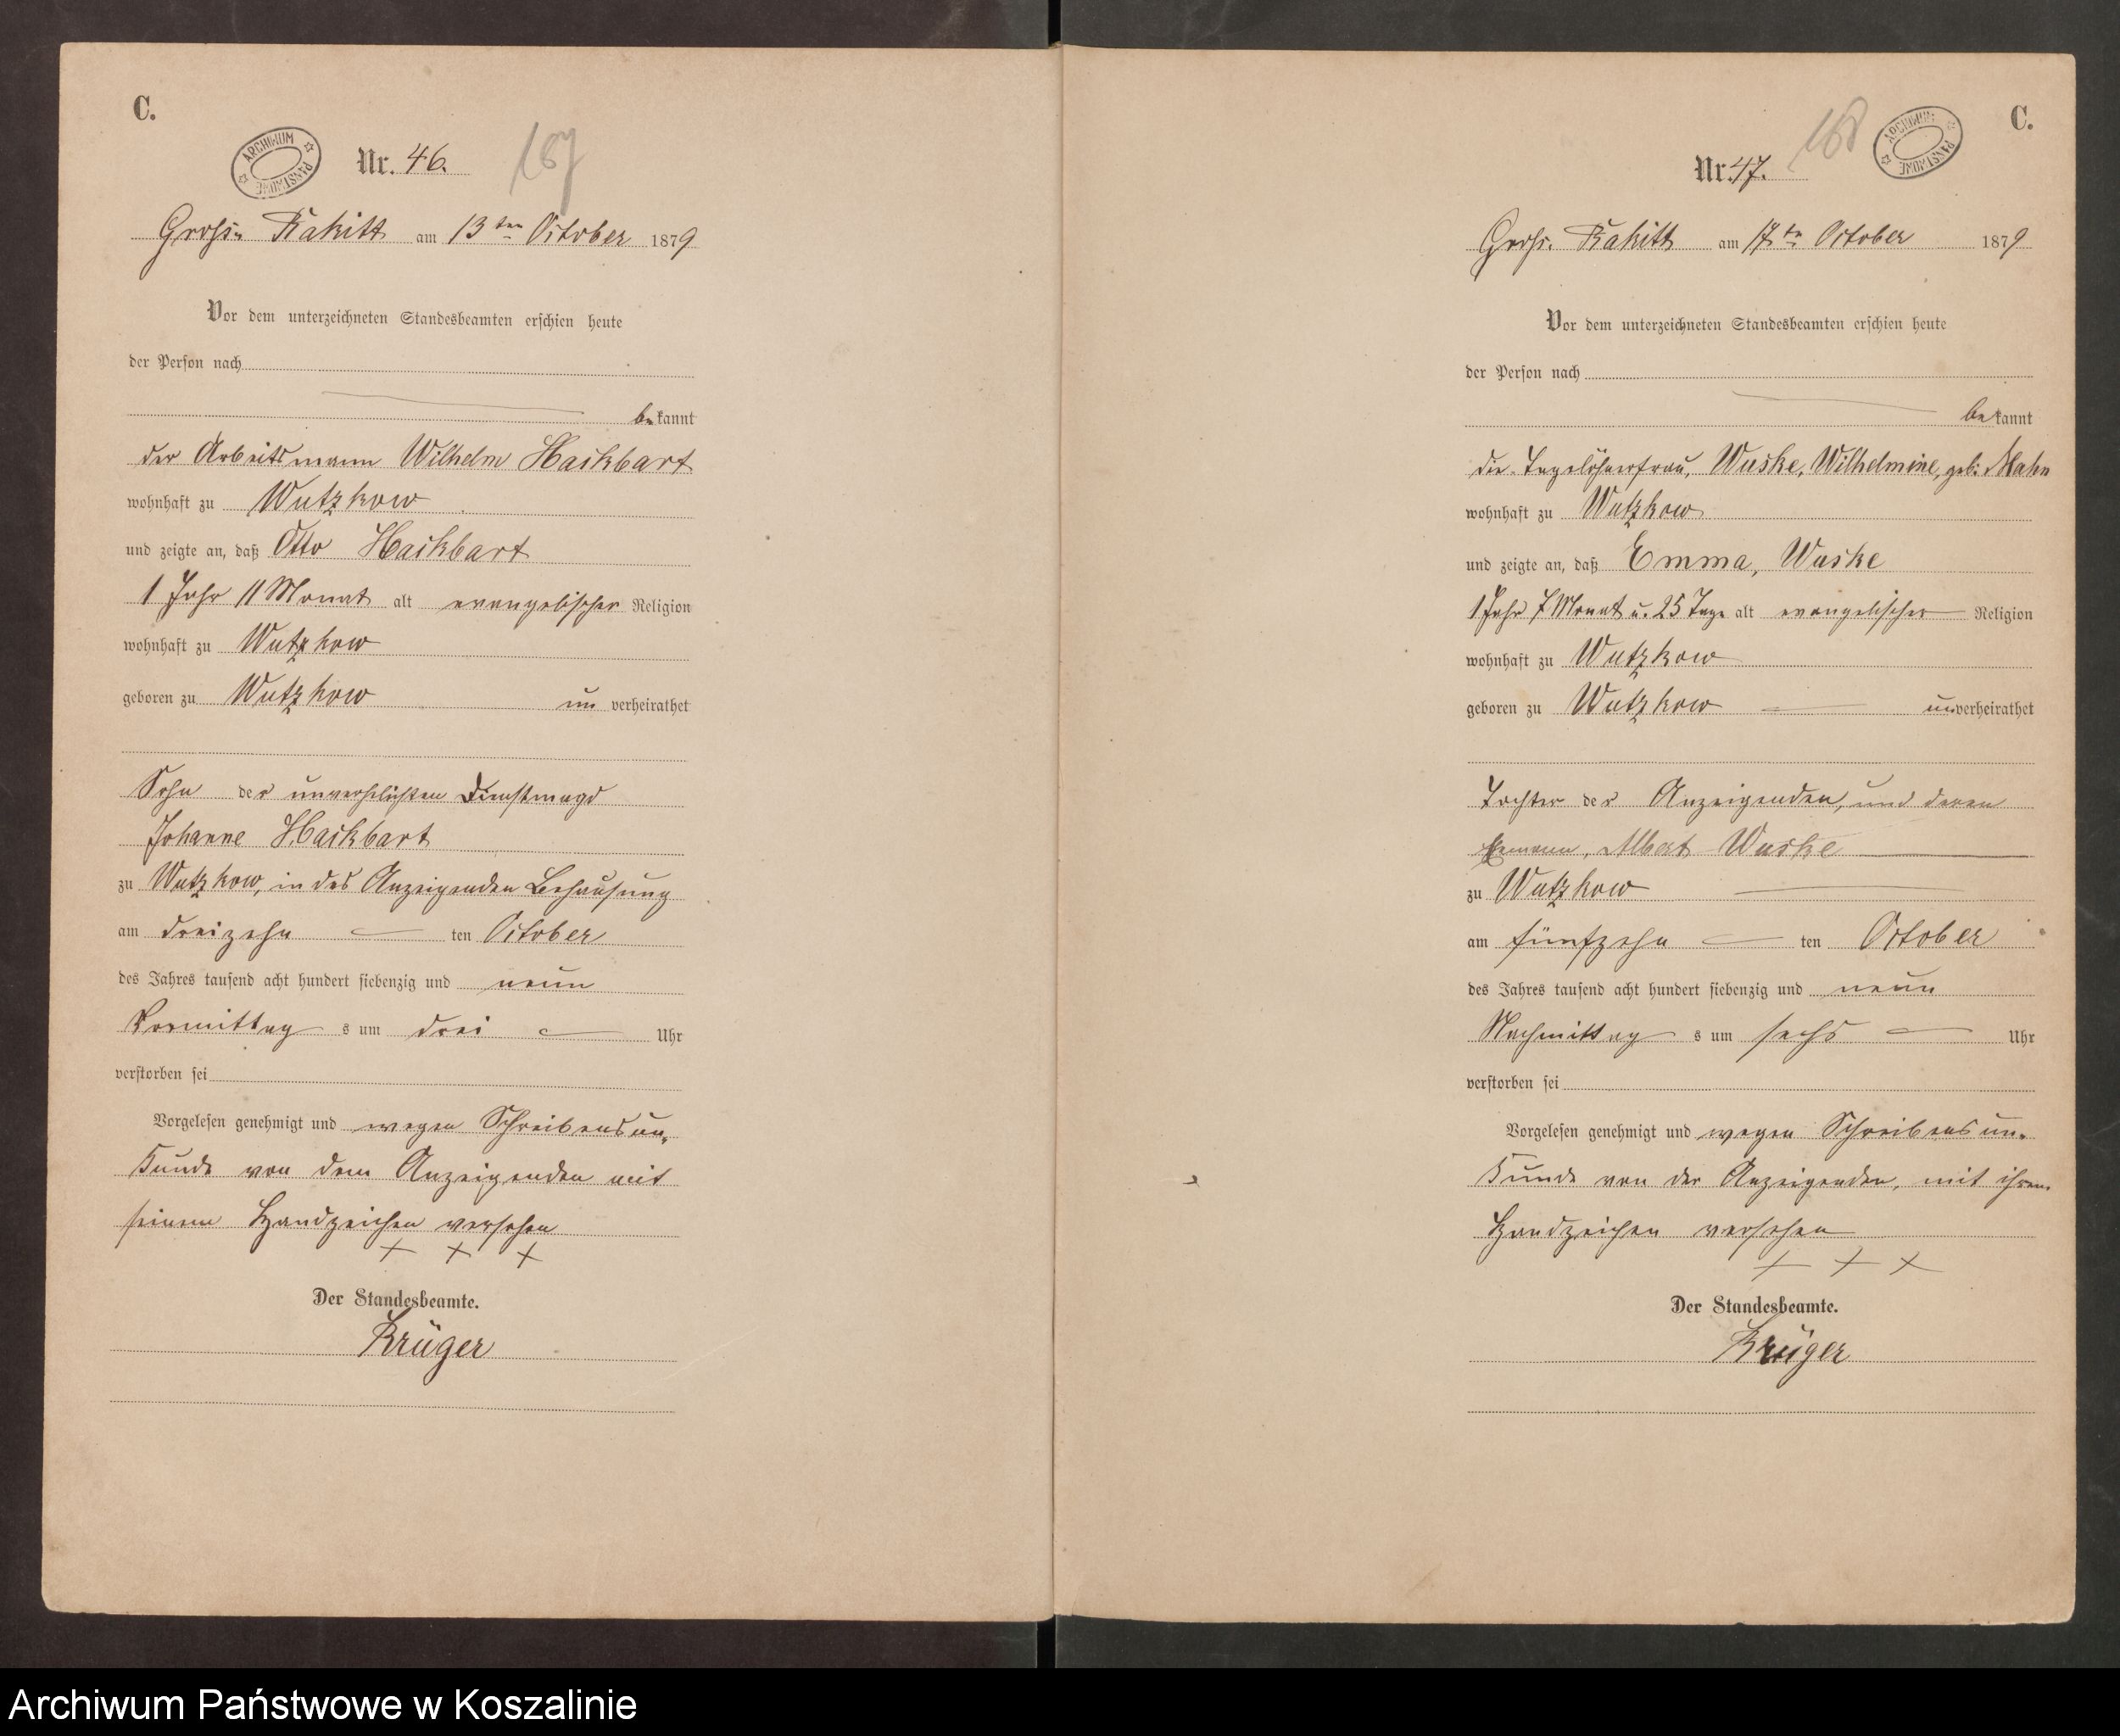 C.
ARCHIWUM PAŃSTWOWE
Nr. 46.
187
Gross- Rakitt am 13ten October 1879
Vor dem unterzeichneten Standesbeamten erschien heute
der Person nach
bekannt
der Arbeitsmann Wilhelm Hackbart
wohnhaft zu Wutzkow
und zeigte an, daß Otto Hackbart
1 Jahr 11 Monat alt evangelischer Religion
wohnhaft zu Wutzkow
geboren zu Wutzkow un verheirathet
Sohn der unverehlichten Dienstmagd
Johanne Hackbart
zu Wutzkow, in des Anzeigenden Behausung
am dreizehn ten October
des Jahres tausend acht hundert siebenzig und neun
Vormittag s um drei Uhr
verstorben sei
Vorgelesen genehmigt und wegen Schreibensun-
kunde von dem Anzeigenden mit
seinem Handzeichen versehen
+ + +
Der Standesbeamte.
Krüger
C.
ARCHIWUM PAŃSTWOWE
188
Nr. 47.
Gross- Rakitt am 17ten October 1879
Vor dem unterzeichneten Standesbeamten erschien heute
der Person nach
bekannt
die Tagelöhnerfrau, Wuske, Wilhelmine, geb. Mahn
wohnhaft zu Wutzkow
und zeigte an, daß Emma, Wuske
1 Jahr 7 Monat u. 25 Tage alt evangelischer Religion
wohnhaft zu Wutzkow
geboren zu Wutzkow unverheirathet
Tochter der Anzeigenden, und deren
Ehemann, Albert Wuske
zu Wutzkow
am fünfzehn ten October
des Jahres tausend acht hundert siebenzig und neun
Nachmittag s um sechs Uhr
verstorben sei
Vorgelesen genehmigt und wegen Schreibensun-
kunde von der Anzeigenden, mit ihrem
Handzeichen versehen
+ + +
Der Standesbeamte.
Krüger
Archiwum Państwowe w Koszalinie